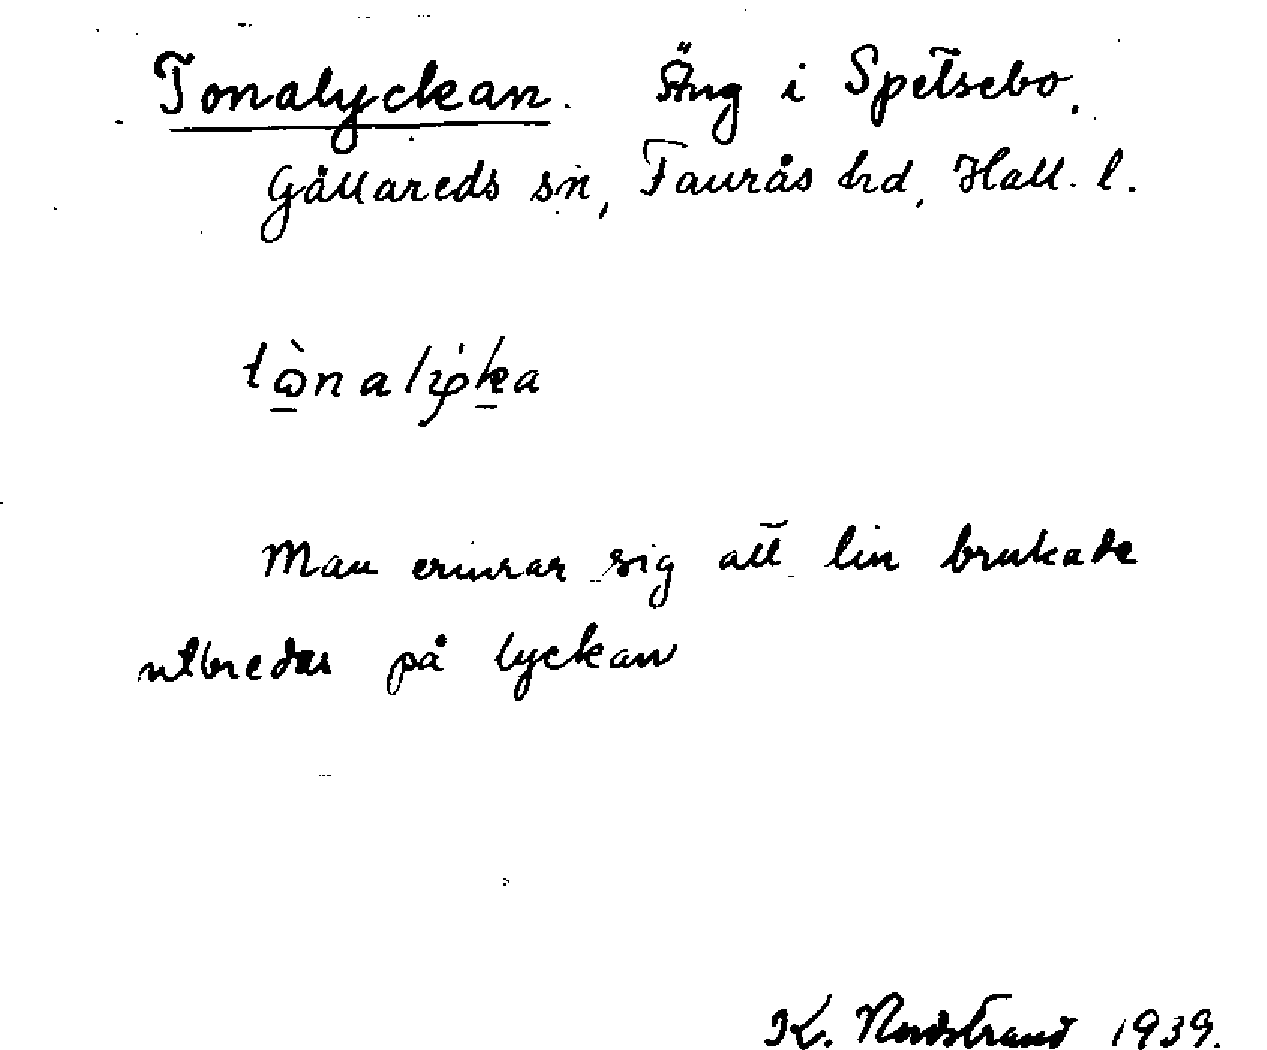 Tonalyckan. Äng i Spetsebo.
Gällareds sn, Faurås hd, Hall. l.
Man erinrar sig att lin brukade
utbredas på lyckan
K. Nordstrand 1939.